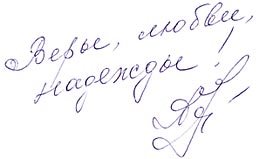 Веры, любви,
надежды!